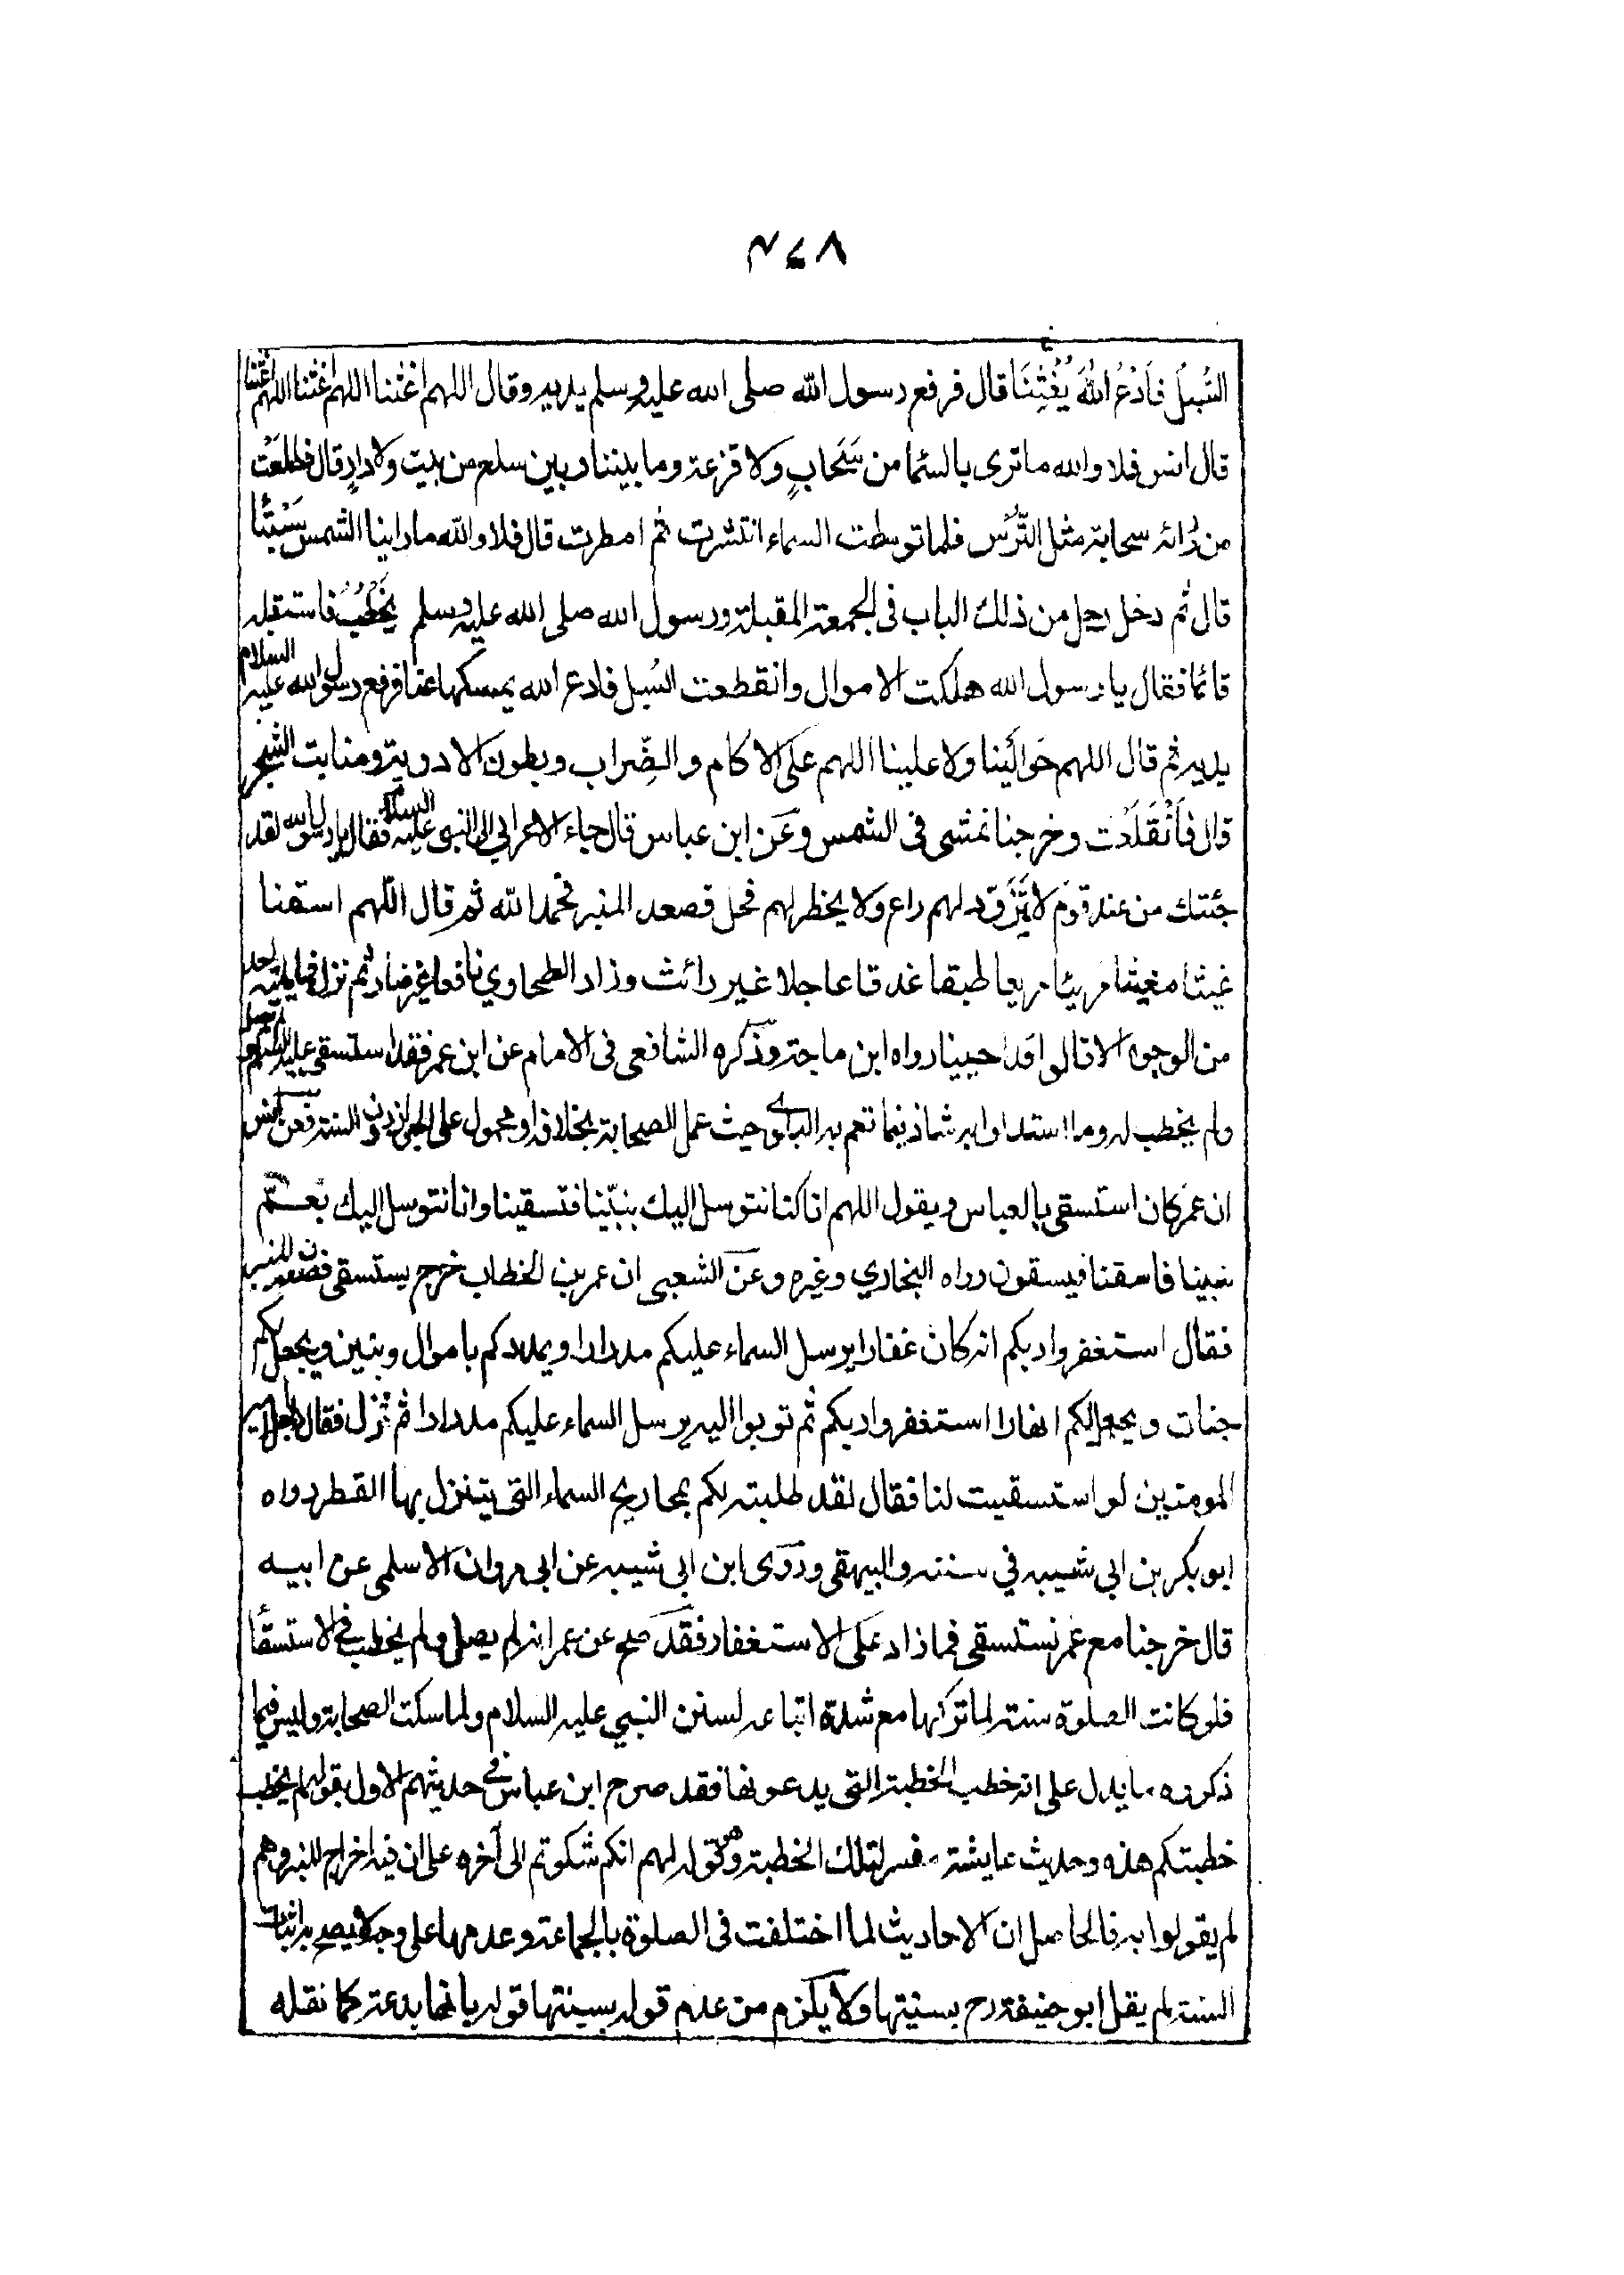 ٣٤٨
السُّبُلُ فَاَدْعُ اللهَ يُغْثِنَا قال فرفع رسول الله صلى الله عليه وسلم يديه وقال اللهم اغثنا اللهم اغثنا اللهم اغثنا
قال انس فلا والله ما ترى بالسما من سَحَابٍ ولا قزعة وما بيننا وبين سلع من بيت ولا دارٍ قال فطلعَت
من ورائه سحابة مثل التُّرُس فلما توسطت السماء انتشرت ثم امطرت قال فلا والله ما راينا الشمس سَبْتًا
قال ثم دخل رجل من ذلك الباب في الجمعة المقبلة ورسول الله صلى الله عليه وسلم يَخْطُبُ فاستقبله
قائما فقال يا رسول الله هلكت الاموال وانقطعت السُبل فادع الله يمسكها عنا فرفع رسول الله عليه السلام
يديه ثم قال اللهم حَوالَيْنا ولا علينا اللهم على الاكام والضِّراب وبطون الاودية ومنابت الشجر
قال فَاَنْقَلَعَت وخرجنا نمشى فى الشمس وعَن ابن عباس قال جاء الاعرابي الى النبي عليه السلام فقال يا رسول الله لقد
جئتك من عند قوم لا يَتَزَوّد لهم راع ولا يخطر لهم فحل فصعد المنبر فحمد الله ثم قال اللّهم اسقنا
غيثا مغيثا مريئا مريعا طبقا غدقا عاجلا غير رائث وزاد الطحاوي نافعا غير ضار ثم نزل فما ياتيه احد
من الوجوه الا قالوا قد احيينا رواه ابن ماجة وذكره الشافعى فى الامام عن ابن عمر فقد استسقى عليه السلام ولم يصل
ولم يخطب له وما استدلوا به شاذ فيما تعم به البلوى حيث عمل الصحابة بخلافه او محمول على الجواز دون السنة فعن انس
ان عمر كان استسقى بالعباس ويقول اللهم انا كنا نتوسل اليك بنبيّنا فتسقينا وانا نتوسل اليك بعَـمّ
نبينا فاسقنا فيسقون رواه البخاري وغيره وعن الشعبى ان عمر بن الخطاب خرج يستسقى فصعد المنبر
فقال استغفروا ربكم انه كان غفارا يرسل السماء عليكم مدرارا ويمددكم باموال وبنين ويجعل لكم
جنات ويجعل لكم انهارا استغفروا ربكم ثم توبوا اليه يرسل السماء عليكم مدرارا ثم نزل فقال رجل امير
المومنين لو استسقيت لنا فقال لقد طلبته لكم بمجاريح السماء التى يتنزل بها القطر رواه
ابو بكر بن ابي شيبه في سننه والبيهقى وروى ابن ابى شيبه عن ابى مروان الاسلمى عن ابيه
قال خرجنا مع عمر نستسقى فما زاد على الاستغفار فقد صح عن عمر انه لم يصل ولم يخطب فى الاستسقأ
فلو كانت الصلوة سنة لما تركها مع شدة اتباعه لسنن النبي عليه السلام ولما سكت الصحابة وليس فيما
ذكروه ما يدل على انه خطب الخطبة التى يدعونها فقد صرح ابن عباس في حديثهم الاول بقوله لم يخطب
خطبتكم هذه وحديث عايشة مفسر لتلك الخطبة وهو قوله لهم انكم شكوتم الى آخره على ان فيه اخراج المنبر وهم
لم يقولوا به فالحاصل ان الاحاديث لما اختلفت فى الصلوة بالجماعة وعدمها على وجه لا يصح به اثبات
السنة لم يقل ابو حنيفة رح بسنيتها ولا يَلزم من عدم قوله بسنيتها قوله بانها بدعة كما نقله